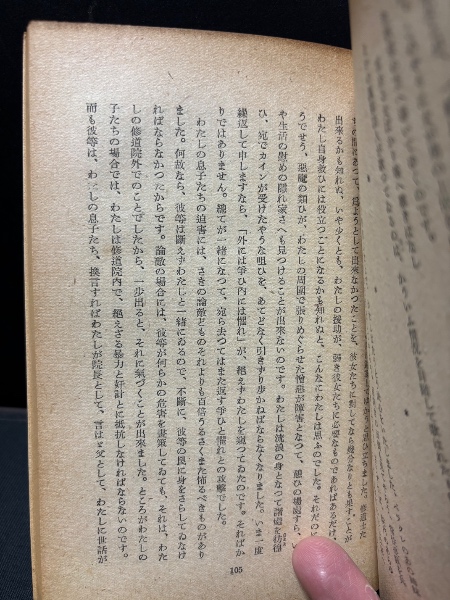 出来るかも知れぬ、いや少くとも、わたしの援助が、弱き彼女たちに必要なものであればあるだけ、
わたし自身救ひには役立つことになるかも知れぬと、こんなにわたしは思ふのでした。それだのに
うでせう、悪魔の類ひが、わたしの周圍で張りめぐらせた憎惡が障害となつて、憩ひの場處すら、い
や生活の慰めの隱れ家さへも見つけることが出來ないのです。わたしは流浪の身となつて諸處を彷徨
ひ、宛でカインが受けたやうな咀ひを、あてどなく引きずり歩かねばならなくなりました。いま一度
繰返して申しますなら、「外には爭ひ內には懼れ」が、絕えずわたしを窺つてゐたのです。そればか
りではありません。總てが一緖になつて、宛ら去つてはまた返す爭ひと懼れとの攻擊でした。
わたしの息子たちの迫害には、さきの論敵どものそれよりも百倍うるさくまた怖るべきものがあり
ました。何故なら、彼等は斷えずわたしと一緖にゐるので、不斷に、彼等の罠に身をさらしてゐなけ
ればならなかつたからです。論敵の場合には、彼等が何らかの危害を畫策してゐても、それは、わた
しの修道院外でのことでしたから、一步出ると、それに氣づくことが出來ました。ところがわたしの
子たちの場合では、わたしは修道院內で、絕えざる暴力と奸計とに抵抗しなければならないのです。
而も彼等は、わたしの息子たち、換言すればわたしが院長として、言はゞ父として、わたしに世話が
105